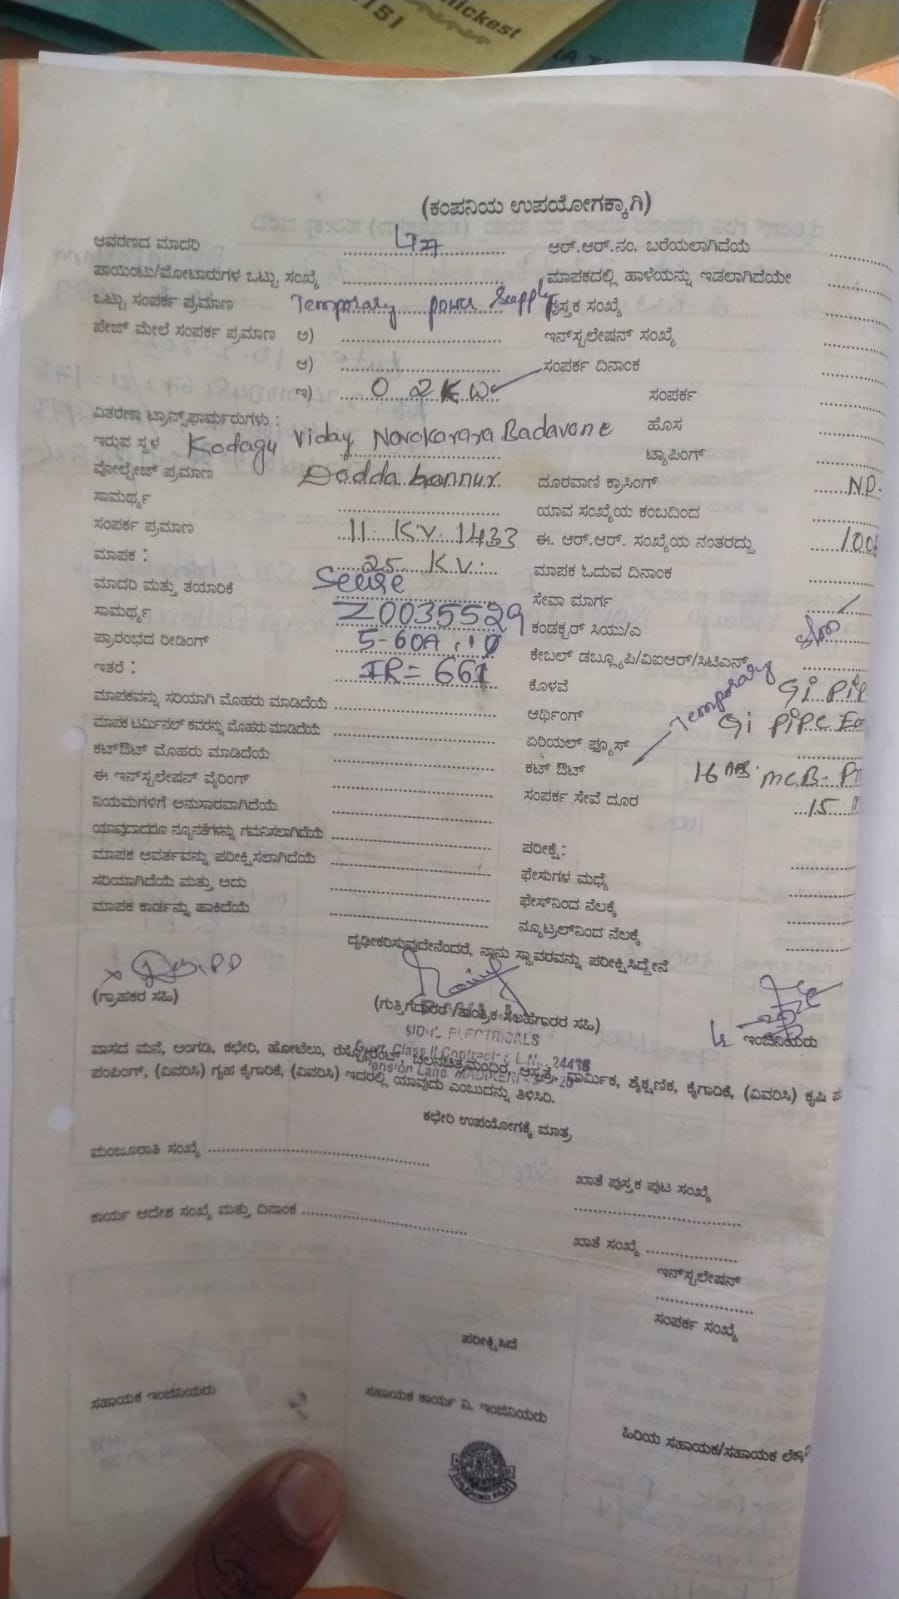 (ಕಂಪನಿಯ ಉಪಯೋಗಕ್ಕಾಗಿ)
ಆವರಣದ ಮಾದರಿ
ಪಾಯಿಂಟು/ಮೋಟಾರುಗಳ ಒಟ್ಟು ಸಂಖ್ಯೆ
ಒಟ್ಟು ಸಂಪರ್ಕ ಪ್ರಮಾಣ Temporary power supply
ಪೇಜ್ ಮೇಲೆ ಸಂಪರ್ಕ ಪ್ರಮಾಣ ಅ)
ಆ)
ಇ) 0.2KW
ವಿತರಣಾ ಟ್ರಾನ್ಸ್‌ಫಾರ್ಮರುಗಳು :
ಇರುವ ಸ್ಥಳ Kodagu Viday Badavane
ವೋಲ್ಟೇಜ್ ಪ್ರಮಾಣ Dodda
ಸಾಮರ್ಥ್ಯ
ಸಂಪರ್ಕ ಪ್ರಮಾಣ 11 K.V. 1433
ಮಾಪಕ : 25 K.V.
ಮಾದರಿ ಮತ್ತು ತಯಾರಿಕೆ
ಸಾಮರ್ಥ್ಯ Z0035529
ಪ್ರಾರಂಭದ ರೀಡಿಂಗ್ 5-60A
ಇತರೆ : IR=661
ಮಾಪಕವನ್ನು ಸರಿಯಾಗಿ ಮೊಹರು ಮಾಡಿದೆಯೆ
ಮಾಪಕ ಟರ್ಮಿನಲ್ ಕವರನ್ನು ಮೊಹರು ಮಾಡಿದೆಯೆ
ಕಟ್‌ಔಟ್ ಮೊಹರು ಮಾಡಿದೆಯೆ
ಈ ಇನ್‌ಸ್ಟಲೇಷನ್ ವೈರಿಂಗ್
ನಿಯಮಗಳಿಗೆ ಅನುಸಾರವಾಗಿದೆಯೆ
ಯಾವುದಾದರೂ ನ್ಯೂನತೆಗಳನ್ನು ಗಮನಿಸಲಾಗಿದೆಯೆ
ಮಾಪಕ ಆವರ್ತವನ್ನು ಪರೀಕ್ಷಿಸಲಾಗಿದೆಯೆ
ಸರಿಯಾಗಿದೆಯೆ ಮತ್ತು ಅದು
ಮಾಪಕ ಕಾರ್ಡನ್ನು ಹಾಕಿದೆಯೆ
ಆರ್.ಆರ್.ನಂ. ಬರೆಯಲಾಗಿದೆಯೆ
ಮಾಪಕದಲ್ಲಿ ಹಾಳೆಯನ್ನು ಇಡಲಾಗಿದೆಯೇ
ಪುಸ್ತಕ ಸಂಖ್ಯೆ
ಇನ್‌ಸ್ಟಲೇಷನ್ ಸಂಖ್ಯೆ
ಸಂಪರ್ಕ ದಿನಾಂಕ
ಸಂಪರ್ಕ
ಹೊಸ
ಟ್ಯಾಪಿಂಗ್
ದೂರವಾಣಿ ಕ್ರಾಸಿಂಗ್
ಯಾವ ಸಂಖ್ಯೆಯ ಕಂಬದಿಂದ
ಈ. ಆರ್.ಆರ್. ಸಂಖ್ಯೆಯ ನಂತರದ್ದು
ಮಾಪಕ ಓದುವ ದಿನಾಂಕ
ಸೇವಾ ಮಾರ್ಗ
ಕಂಡಕ್ಟರ್ ಸಿಯು/ಎ
ಕೇಬಲ್ ಡಬ್ಲ್ಯೂಪಿ/ವಿಐಆರ್/ಸಿಟಿಎನ್
ಕೊಳವೆ Temporary
ಆರ್ಥಿಂಗ್ Gi PiPe
ಏರಿಯಲ್ ಫ್ಯೂಸ್
ಕಟ್ ಔಟ್ MCB
ಸಂಪರ್ಕ ಸೇವೆ ದೂರ 15
ಪರೀಕ್ಷೆ:
ಫೇಸುಗಳ ಮಧ್ಯೆ
ಫೇಸ್‌ನಿಂದ ನೆಲಕ್ಕೆ
ನ್ಯೂಟ್ರಲ್‌ನಿಂದ ನೆಲಕ್ಕೆ
ದೃಢೀಕರಿಸುವುದೇನೆಂದರೆ, ನಾನು ಸ್ಥಾವರವನ್ನು ಪರೀಕ್ಷಿಸಿದ್ದೇನೆ
(ಗ್ರಾಹಕರ ಸಹಿ)
(ಗುತ್ತಿಗೆದಾರರ /ತಾಂತ್ರಿಕ ಸಲಹೆಗಾರರ ಸಹಿ)
ಇಂಜಿನಿಯರು
ELECTRICALS
ವಾಸದ ಮನೆ, ಅಂಗಡಿ, ಕಛೇರಿ, ಹೋಟೆಲು, ರೆಸ್ಟೋರೆಂಟ್, ಚಲನಚಿತ್ರಮಂದಿರ, ಆಸ್ಪತ್ರೆ, ಧಾರ್ಮಿಕ, ಶೈಕ್ಷಣಿಕ, ಕೈಗಾರಿಕೆ, (ವಿವರಿಸಿ) ಕೃಷಿ
ಪಂಪಿಂಗ್, (ವಿವರಿಸಿ) ಗೃಹ ಕೈಗಾರಿಕೆ, (ವಿವರಿಸಿ) ಇದರಲ್ಲಿ ಯಾವುದು ಎಂಬುದನ್ನು ತಿಳಿಸಿರಿ.
ಕಛೇರಿ ಉಪಯೋಗಕ್ಕೆ ಮಾತ್ರ
ಮಂಜೂರಾತಿ ಸಂಖ್ಯೆ
ಖಾತೆ ಪುಸ್ತಕ ಪುಟ ಸಂಖ್ಯೆ
ಕಾರ್ಯ ಆದೇಶ ಸಂಖ್ಯೆ ಮತ್ತು ದಿನಾಂಕ
ಖಾತೆ ಸಂಖ್ಯೆ
ಇನ್‌ಸ್ಟಲೇಷನ್
ಸಂಪರ್ಕ ಸಂಖ್ಯೆ
ಪರೀಕ್ಷಿಸಿದೆ
ಸಹಾಯಕ ಇಂಜಿನಿಯರು
ಸಹಾಯಕ ಕಾರ್ಯ ನಿ. ಇಂಜಿನಿಯರು
ಹಿರಿಯ ಸಹಾಯಕ/ಸಹಾಯಕ